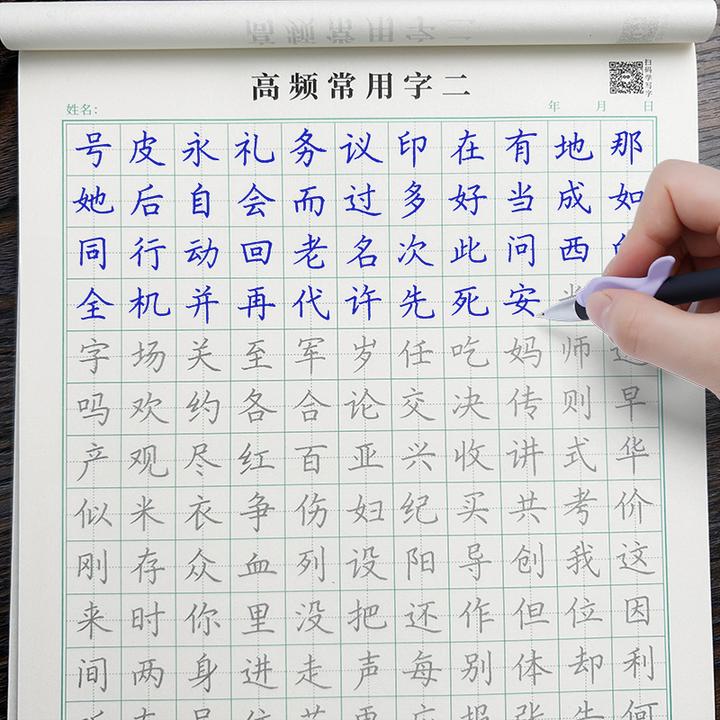 高频常用字二
扫码学写字
姓名： 年 月 日
号皮永礼务议印在有地那
她后自会而过多好当成如
同行动回老名次此问西
全机并再代许先死安
字场关至军岁任吃妈师
吗欢约各合论交决传则早
产观尽红百亚兴收讲式华
似米衣争伤妇纪买共考价
刚存众血列设阳导创我这
来时你里没把还作但位因
间两身进走声每别体却利